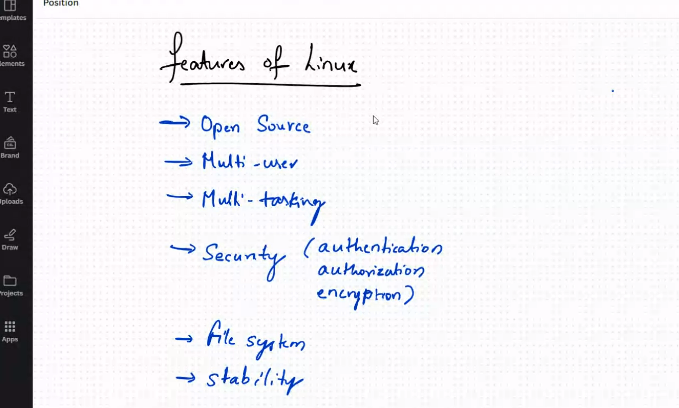 Position
mplates
lements
Text
Brand
ploads
Draw
rojects
Apps
features of Linux
→ Open Source
→ Multi-user
→ Multi-tasking
→ Security (authentication
authorization
encryption)
→ file system
→ stability